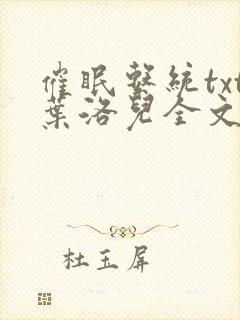 催眠繫統txt
葉洛兒全文
杜玉屏